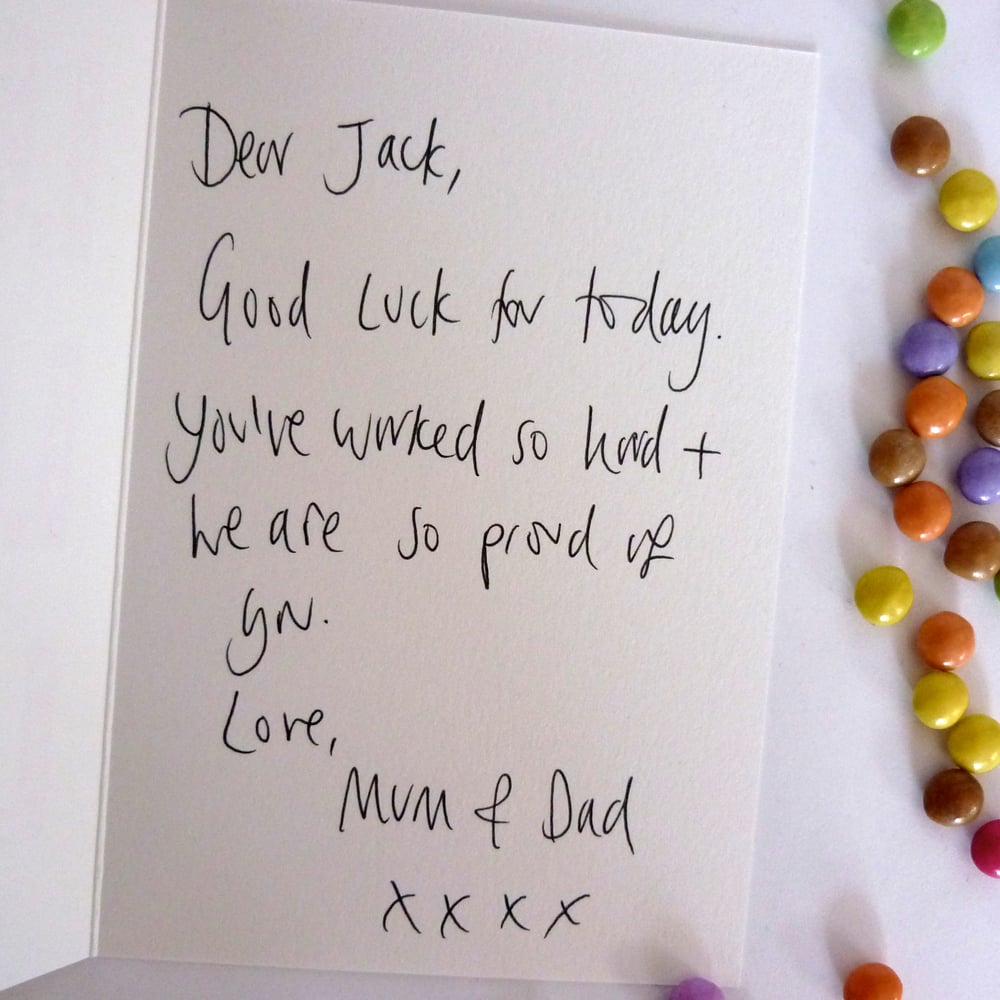 Dear Jack,
Good luck for today.
You've worked so hard +
we are so proud of
you.
Love,
Mum & Dad
x x x x